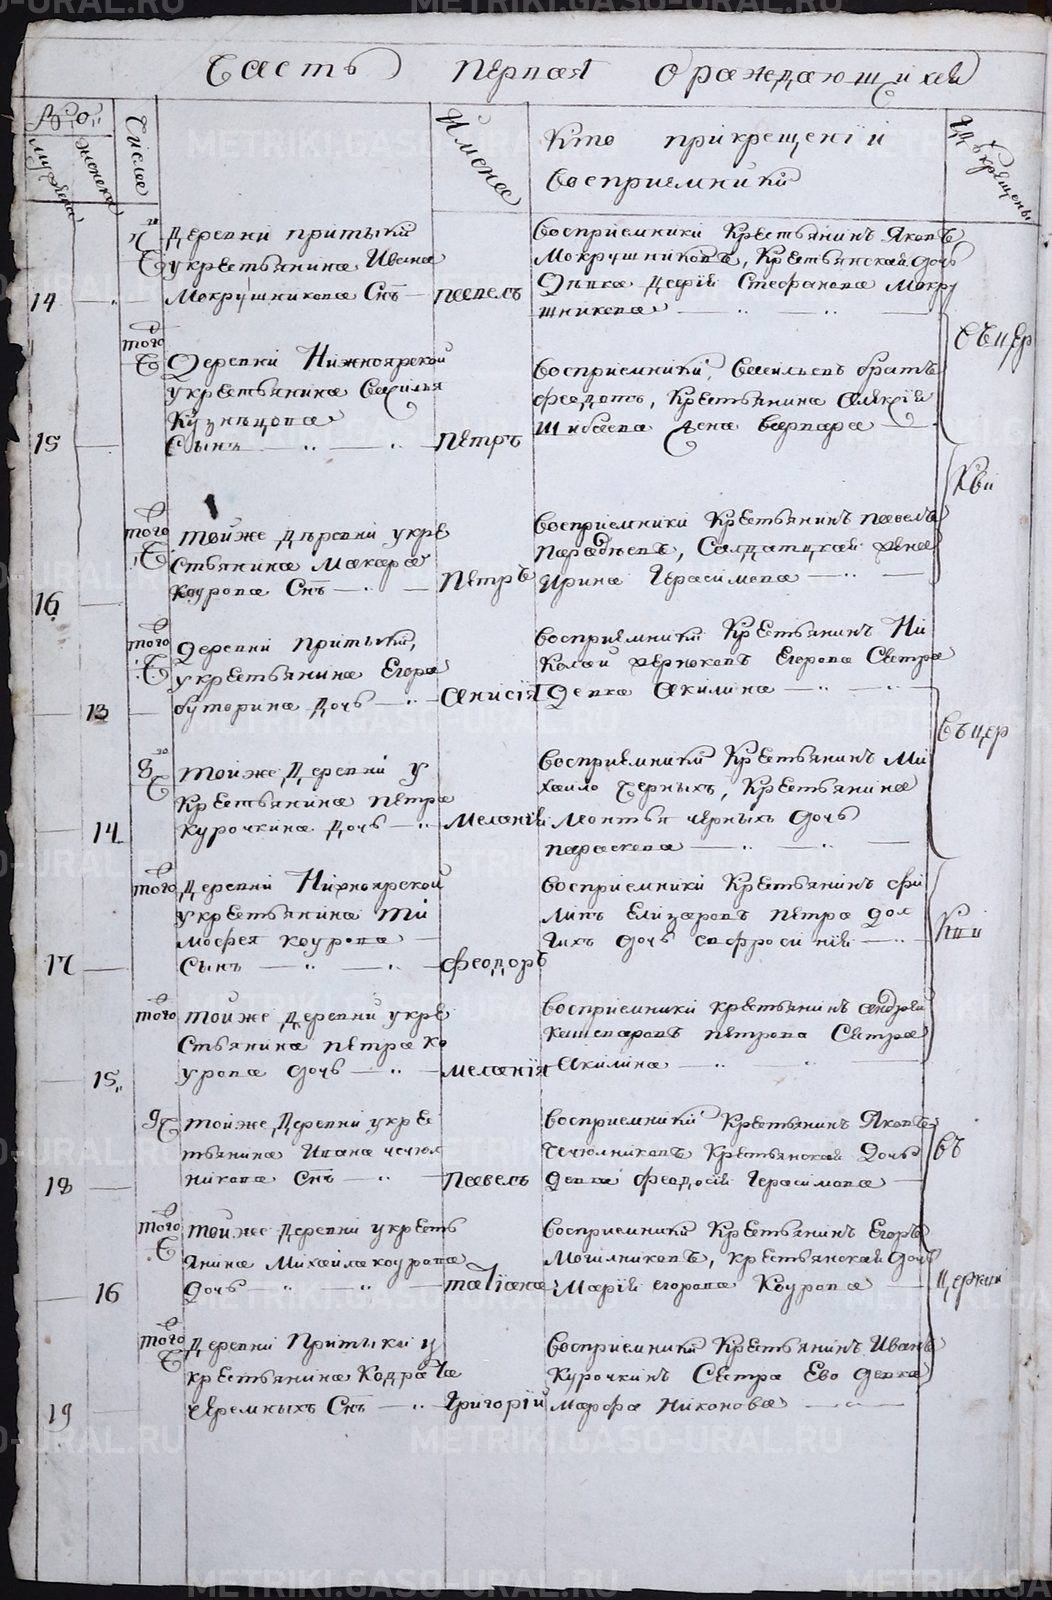 Часть первая ораждающихся
Число
Имена
Кто при крещеніи
восприемники
Гдѣ крещены
Деревни притыки
у крестьянина Ивана
14 Мокрушникова Снъ павелъ
Восприемники Крестьянинъ Яковъ
Мокрушниковъ, Крестьянская дочь
Дѣвка Дарія Стефанова Мокру
шникова
того Деревни Нижноярской
у крестьянина Василья
Кузнѣцова
15 Сынъ Петръ
Восприемники, Васильевъ братъ
феодотъ, Крестьянина Алексія
Шибаева жена варвара
въ цер
кви
того тойже дѣревни у кре
стьянина Макара
16 коурова Снъ Петръ
Восприемники Крестьянинъ павелъ
Салдатская жена
Ирина Герасимова
того Деревни притыки,
у крестьянина Егора
13 буторина Дочь Анисія
Восприемники Крестьянинъ Ни
колай Егорова Сестра
Девка Акилина
тойже Деревни у
Крестьянина петра
14 курочкина Дочь Меланія
Восприемники Крестьянинъ Ми
хаило Черныхъ, Крестьянина
Леонтья черныхъ Дочь
параскева
въ цер
того Деревни Нижноярской
у крестьянина ти
мофея коурова
17 Сынъ феодоръ
Восприемники Крестьянинъ фи
липъ Елизаровъ петра дол
гихъ дочь
кви
того тойже деревни у кре
стьянина петра ко
15 урова дочь меланія
Восприемники крестьянинъ андрей
петрова Сестра
Акилина
тойже Деревни у кре
тьянина Ивана чечюл
18 никова Снъ Павелъ
Восприемники Крестьянинъ Яковъ
Чечюлниковъ Крестьянская Дочь
девка феодосія Герасимова
въ
того тойже Деревни у кресть
янина Михаила коурова
16 Дочь татіана
Восприемники Крестьянинъ Егоръ
Могилниковъ, крестьянская дочь
Марія егорова Коурова
церкви
того Деревни Притыки у
крестьянина Кодрата
19 черемныхъ Снъ Григорій
Восприемники Крестьянинъ Иванъ
Курочкинъ Сестра Ево девка
Марфа Никонова
METRIKI.GASO-URAL.RU